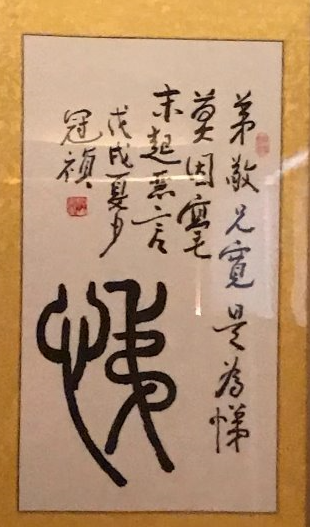 弟敬兄寬是為悌
莫因寃毛
末起惡言
戊戌夏月
冠禎
悌